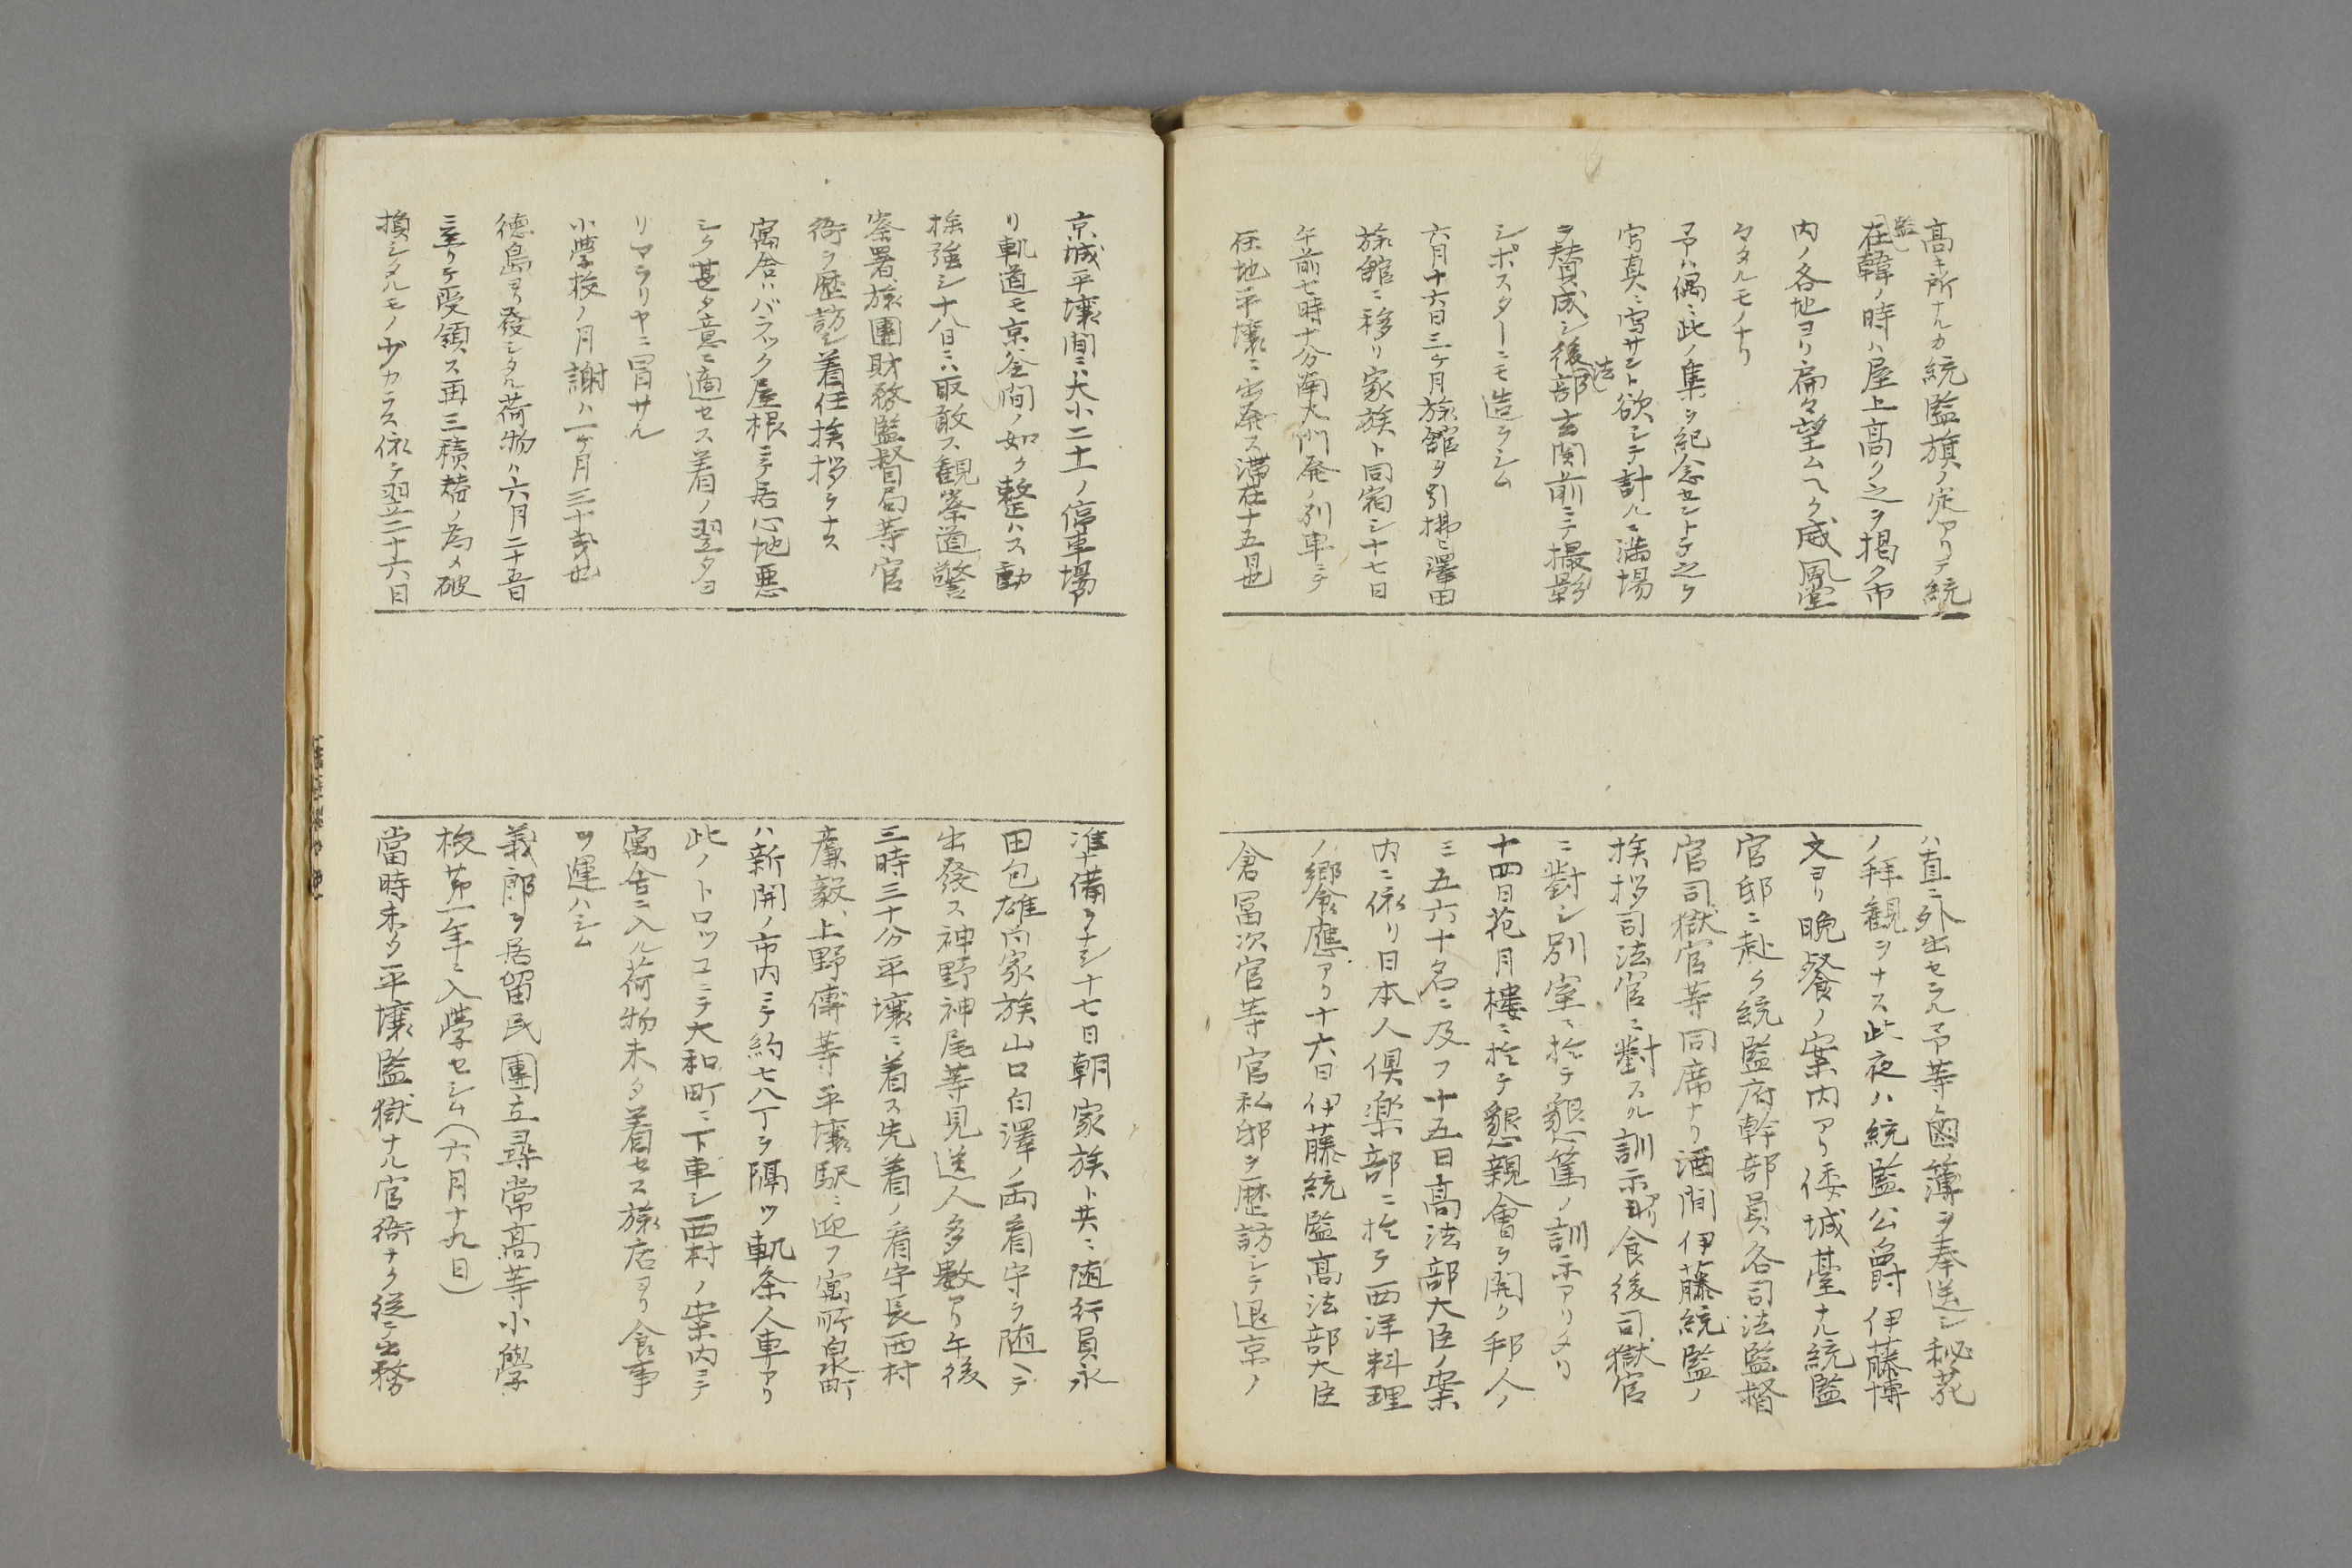 高キ所ナルカ統監旗ノ定アリテ統
監
在韓ノ時ハ屋上高ク之ヲ揭ク市
内ノ各地ヨリ扁々望ムヘク威風堂
々タルモノナリ
予ハ偶ニ此ノ集ヲ紀念セントテ之ヲ
写真ニ写サント欲シテ計ルニ満場
ヲ賛成シ後法部玄関前ニテ撮影
シポスターニモ造ラシム
六月十六日三ケ月旅舘ヲ引拂ヒ澤田
旅館ニ移リ家族ト同宿シ十七日
午前七時十分南大門発ノ列車ニテ
任地平壌ニ出発ス滞在十五日也
ハ直ニ外出セラル予等鹵簿ヲ奉送シ秘苑
ノ拜観ヲナス此夜ハ統監公爵伊藤博
文ヨリ晩餐ノ案内アリ倭城臺ナル統監
官邸ニ赴ク統監府幹部員各司法監督
官司獄官等同席ナリ酒間伊藤統監ノ
挨拶司法官ニ對スル訓示アリ食後司獄官
ニ對シ別室ニ於テ懇篤ノ訓示アリタリ
十四日花月樓ニ於テ懇親會ヲ開ク邦人ノ
ミ五六十名ニ及フ十五日高法部大臣ノ案
内ニ依リ日本人倶楽部ニ於テ西洋料理
ノ饗應アリ十六日伊藤統監高法部大臣
倉冨次官等官私邸ヲ歴訪シテ退京ノ
京城平壌間ニハ大小二十一ノ停車場ア
リ軌道モ京釜間ノ如ク整ハス動
揺強シ十八日ニハ取敢ス観察道警
察署、旅團財務監督局等官
衙ヲ歴訪シ着任挨拶ヲナス
寓舎ハバラック屋根ニテ居心地悪
シク甚タ意ニ適セス着ノ翌夕ヨ
リマラリヤニ冒サル
小學校ノ月謝ハ一ケ月三十銭也
徳島ヨリ發シタル荷物ハ六月二十五日
ニ至リテ受領ス再三積替ノ為メ破
損シタルモノ少カラス依テ翌二十六日
準備ヲナシ十七日朝家族ト共ニ随行員永
田包雄内家族山口白澤ノ両看守ヲ随ヘテ
出發ス神野神尾等見送人多數アリ午後
三時三十分平壌ニ着ス先着ノ看守長西村
廉毅、上野傳等平壌駅ニ迎フ寓所泉町
ハ新開ノ市内ニテ約七八丁ヲ隔ツ軌条人車アリ
此ノトロッコニテ大和町ニ下車シ西村ノ案内ニテ
寓舎ニ入ル荷物未タ着セス旅店ヨリ食事
ヲ運ハシム
義郎ヲ居留民團立尋常高等小學
校第一年ニ入學セシム(六月十九日)
當時未タ平壌監獄ナル官衙ナク従テ出務